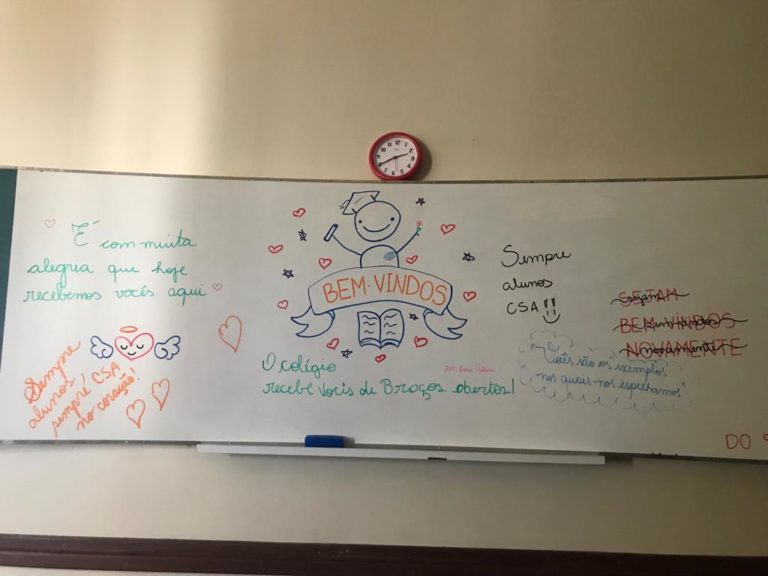 É com muita
alegria que hoje
recebemos vocês aqui
Sempre
alunos
sempre CSA
no coração!
BEM-VINDOS
O colégio
recebe vocês de Braços abertos!
Sempre
alunos
CSA
SEJAM
BEM-VINDOS
NOVAMENTE
vocês são os exemplos
"nos quais nos espelhamos"
DO